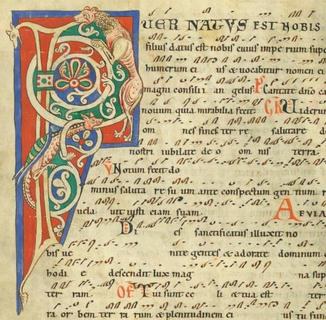 PUER NATUS EST NOBIS
filius datus est nobis cuius imperium super
humerum eius & uocabitur nomen e
magni consilii angelus Cantate dno ca
nouum quia mirabilia fecit GR Uiderunt
om nes fines ter re salutare d
nostri iubilate deo om nis terra
V Notum fecit do
minus saluta re su um ante conspectum gentium
uela uit iusti ciam suam. ALLEVIA
Di es sanctificatus illuxit no
bis ue nite gentes & adorate dominum
hodi e descendit lux mag
ter ram. OF Tui sunt ce li & tua est ter
ra or bem ter ra rum & plenitudinem ei